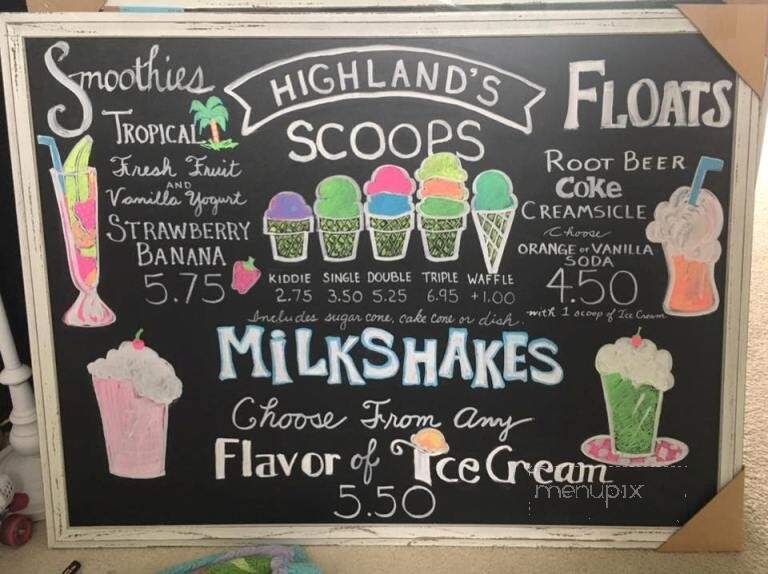 Smoothies
TROPICAL
Fresh Fruit
AND
Vanilla Yogurt
STRAWBERRY
BANANA
5.75
HIGHLAND'S
SCOOPS
KIDDIE SINGLE DOUBLE TRIPLE WAFFLE
2.75 3.50 5.25 6.95 +1.00
Includes sugar cone, cake cone or dish.
FLOATS
ROOT BEER
Coke
CREAMSICLE
Choose
ORANGE or VANILLA
SODA
4.50
with 1 scoop of Ice Cream
MILKSHAKES
Choose From Any
Flavor of Ice Cream
5.50
menupix